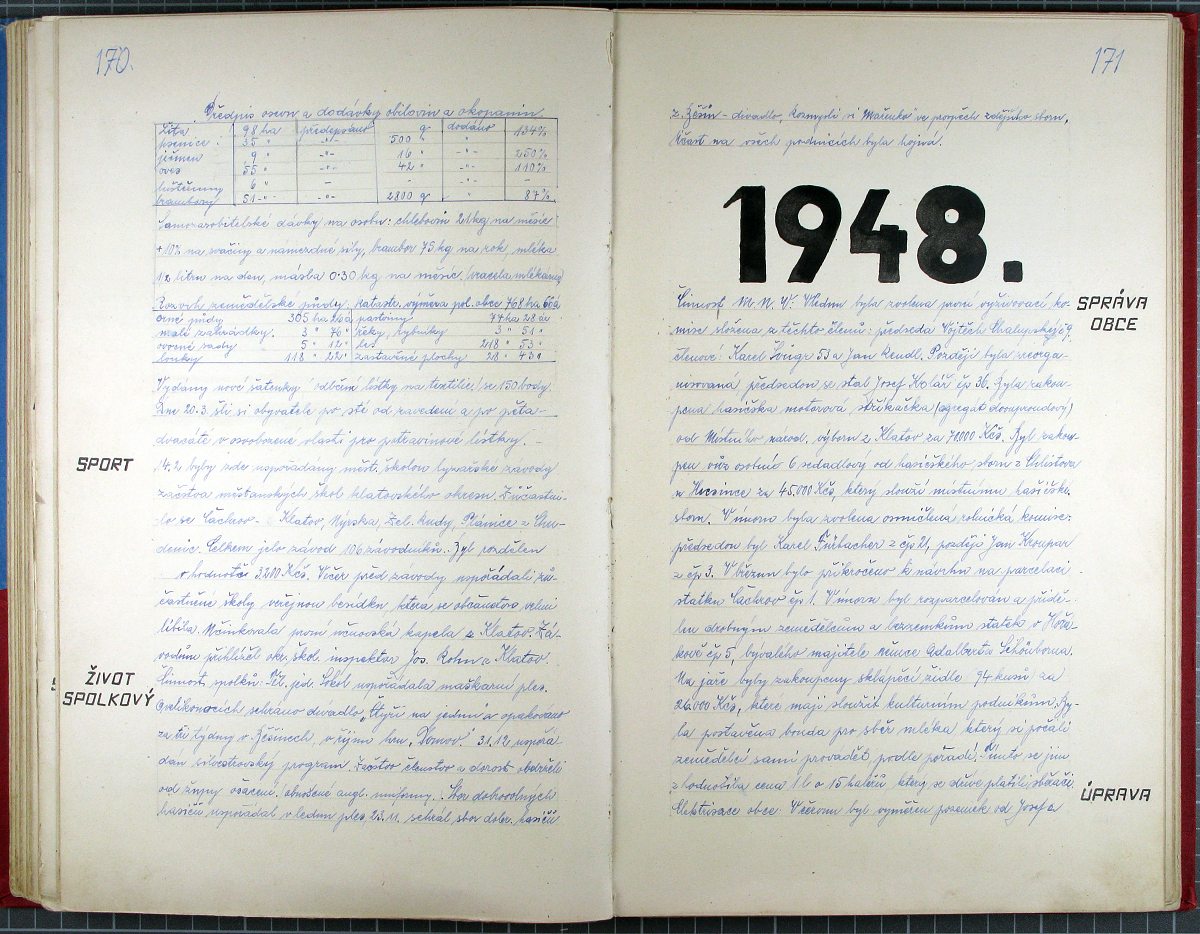 170.
Předpis osevu a dodávky obilovin a okopanin.
žita 98 ha předepsáno q dodáno 134%
pšenice . 35 " -"- 500 " -"-
ječmen 9 " -"- 16 " -"- 250%
oves 55 " 42 " -"- 110%
luštěniny 6 " - - -"- -
brambory 51 -"- -"- 2800 q 87%
Samozásobitelské dávky na osobu: chlebovin 21 kg na měsíc
+ 10% na svačiny a námezdné síly, brambor 75 kg na rok, mléka
1/2 litru na den, másla 0·30 kg na měsíc (vracela mlékárna)
Rozvrh zemědělské půdy. Katastr. výměra pol. obce 768 ha 66 a
orné půdy 305 ha pastviny 77 ha 28 ar
malé zahrádky. 3 " 76 " řeky, rybníky 3 " 51 "
ovocné sady 5 " 12 " les 218 " 53 "
louky 118 " 22 " zastavěné plochy 28 " 43 "
Vydány nové šatenky (odběrní lístky na textilie) se 150 body.
Dne 20.3. šli si obyvatelé po sté od zavedení a po pěta-
dvacáté v osvobozené vlasti pro potravinové lístky. -
SPORT
14.2 byly zde uspořádány měšť. školou lyžařské závody
žactva měšťanských škol klatovského okresu. Zúčastni-
lo se Čachrov - Klatov, Nýrska, Žel. Rudy, Plánice z Chu-
denic. Celkem jelo závod 106 závodníků. Byl rozdělen
v hodnotě 3.200 Kčs. Večer před závody uspořádali zú-
častněné školy veřejnou besídku, která se občanstvu velmi
líbila. Účinkovala první učňovská kapela z Klatov. Zá-
vodům přihlížel okr. škol. inspektor Jos. Rohn z Klatov.
ŽIVOT
SPOLKOVÝ
Činnost spolků: Těl. jed. Sokol uspořádala maškarní ples.
O velikonocích sehráno divadlo „Čtyři na jednu" a opakováno
za tři týdny v Běšinech, v říjnu hru „Domov." 31.12. uspořá-
dán silvestrovský program. Žactvo členstvo a dorost obdrželi
od župy ošacení, obnošené angl. uniformy. Sbor dobrovolných
hasičů uspořádal v lednu ples, 23.11. sehrál sbor dobr. hasičů
171
z Běšin - divadlo, Rozmysli si Mařenko ve prospěch zdejšího sboru.
Účast na všech podnicích byla hojná.
1948.
SPRÁVA
OBCE
Činnost M. N. V: V lednu byla zvolena první vyživovací ko-
mise složena z těchto členů: předseda Vojtěch Chalupský čp 9,
členové: Karel 53 a Jan Rendl. Později byla reorga-
nisovaná předsedou se stal Josef Kolář čp 36. Byla zakou-
pena hasičská motorová stříkačka (agregát dvouproudový)
od Místního národ. výboru z Klatov za 70.000 Kčs. Byl zakou-
pen vůz osobní 6 sedadlový od hasičského sboru z Chlistova
u za 45.000 Kčs, který slouží místnímu hasičsk.
sboru. V únoru byla zvolena osmičlená rolnická komise:
předsedou byl Karel Fürbacher z čp 21, později Jan Kroupar
z čp 3. V březnu bylo přikročeno k návrhu na parcelaci
statku Čachrov čp 1. V únoru byl rozparcelován a přidě-
len drobným zemědělcům a bezzemkům statek v
čp 5, bývalého majitele Adalberta Schönborna.
Na jaře byly zakoupeny sklápěcí židle 94 kusů za
26.000 Kčs, které mají sloužit kulturním podnikům. By-
la postavena bouda pro sběr mléka který si počali
zemědělci sami provádět podle pořádí. Tímto se jim
zhodnotila cena 1 l o 15 haléřů, který se dříve platili sběrači.
ÚPRAVA
Elektrisace obce V červnu byl vyměřen pozemek od Josefa